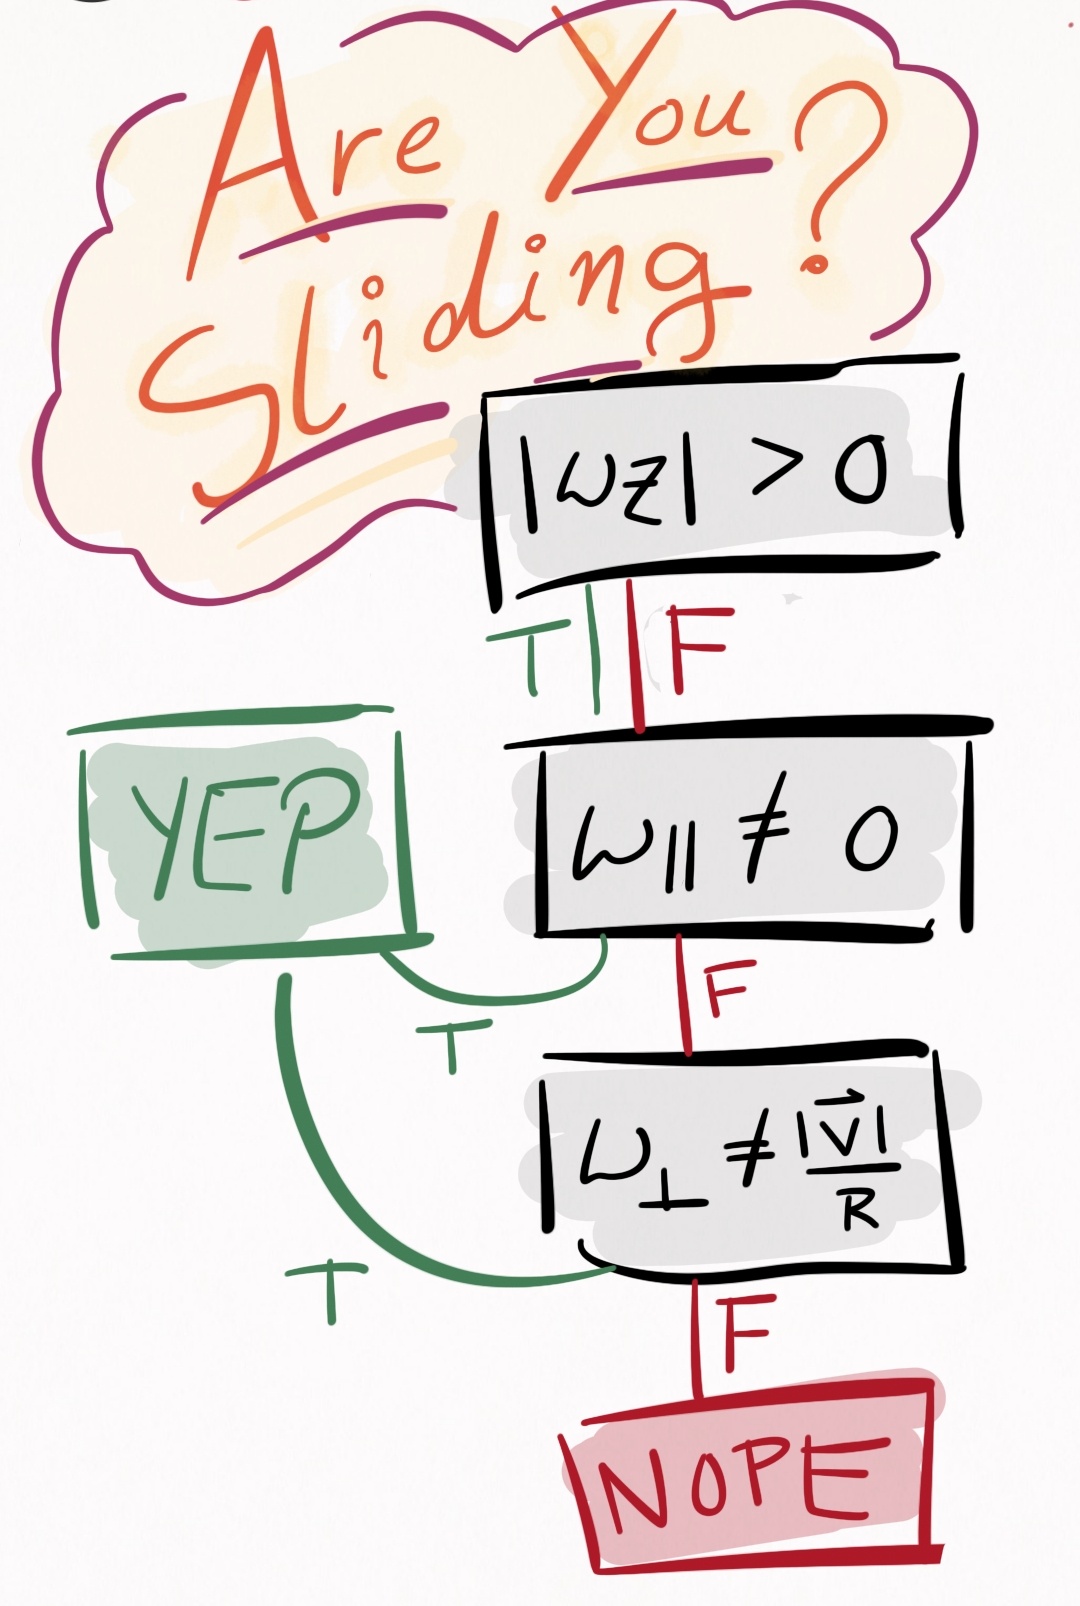 Are You
Sliding?
|ωz| > 0
T F
YEP
ω|| ≠ 0
F
T
ω⊥ ≠ |v⃗|
R
T
F
NOPE